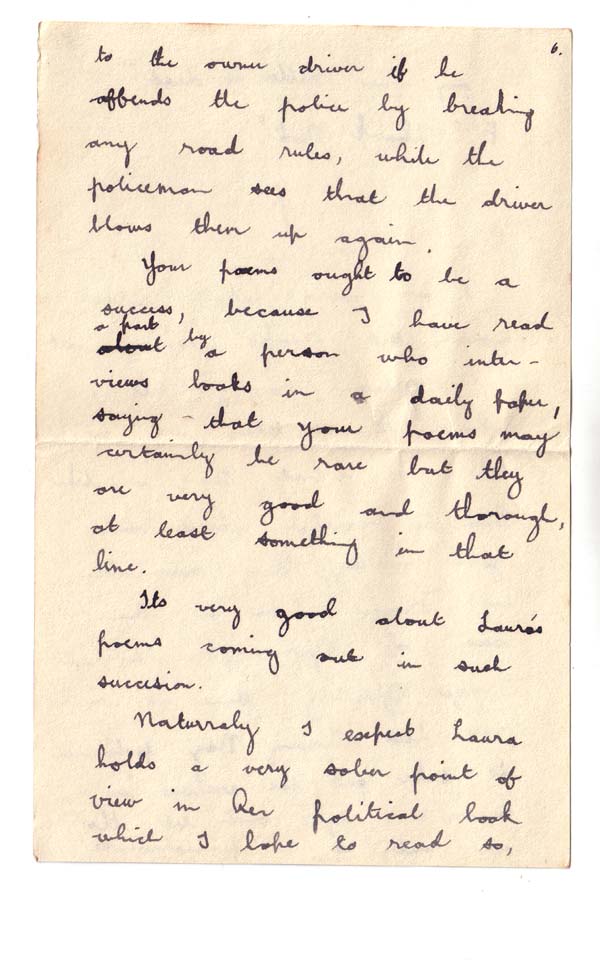 6.
to the owner driver if he
offends the police by breaking
any road rules, while the
policeman sees that the driver
blows them up again.
Your poems ought to be a
success, because I have read
a part
about by a person who inter-
views books in a daily paper,
saying - that your poems may
certainly be rare but they
are very good and thorough,
at least something in that
line.
Its very good about Laura's
poems coming out in such
succision.
Naturraly I expect Laura
holds a very sober point of
view in her political book
which I hope to read so,